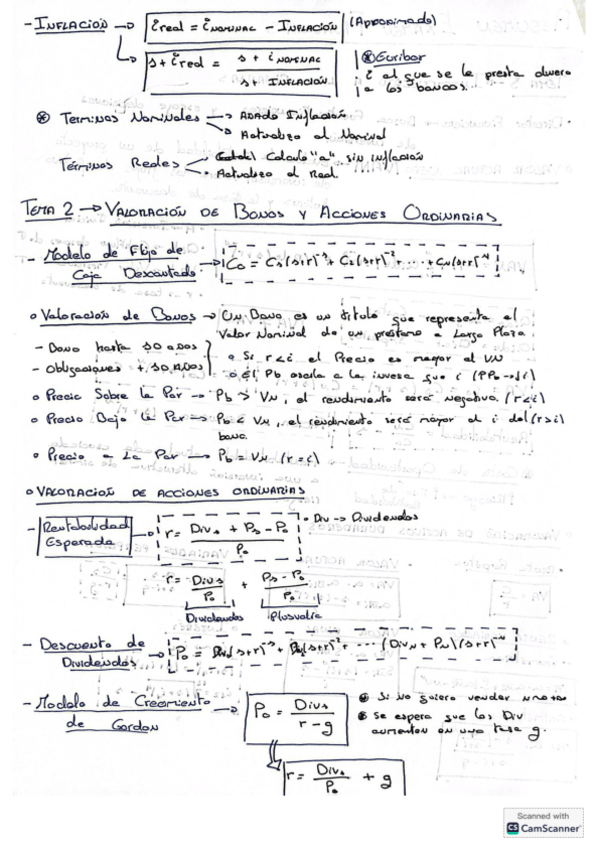 - INFLACION → i real = i NOMINAL - INFLACIÓN (Aproximado)
1 + i real = 1 + i NOMINAL / 1 + INFLACIÓN
⊛ Euribor
i al que se le presta dinero
a los bancos.
⊛ Terminos Nominales → Añado Inflación
→ Actualizo al Nominal
Términos Reales → Calculo "a" sin inflación
→ Actualizo al Real
TEMA 2 → VALORACIÓN DE BONOS Y ACCIONES ORDINARIAS
- Modelo de Flujo de Caja Descontado → C0 = C1(1+r)^-1 + C2(1+r)^-2 + ... + CN(1+r)^-N
o Valoración de Bonos → Un Bono es un titulo que representa el
Valor Nominal de un préstamo a Largo Plazo
- Bono hasta 10 años
- Obligaciones + 10 años
o Si r<i el Precio es mayor al VN
o El Pb oscila a la inversa que i (↑Pb→↓i)
o Precio Sobre la Par → Pb > VN, el rendimiento será negativo. (r<i)
o Precio Bajo la Par → Pb < VN, el rendimiento será mayor al i del (r>i)
bono.
o Precio a La Par → Pb = VN (r=i)
o VALORACION DE ACCIONES ORDINARIAS
- Rentabilidad Esperada → r = Div1 + P1 - P0 / P0
• Div → Dividendos
r = Div1 / P0 + P1 - P0 / P0
Dividendos Plusvalía
- Descuento de Dividendos → P0 = Div1(1+r)^-1 + Div2(1+r)^-2 + ... (DivN + PN)(1+r)^-N
- Modelo de Crecimiento de Gordon → P0 = Div1 / r - g
⊛ Si no quiero vender
⊛ Se espera que los Div
aumenten en una tasa g.
r = Div1 / P0 + g
Scanned with
CS CamScanner